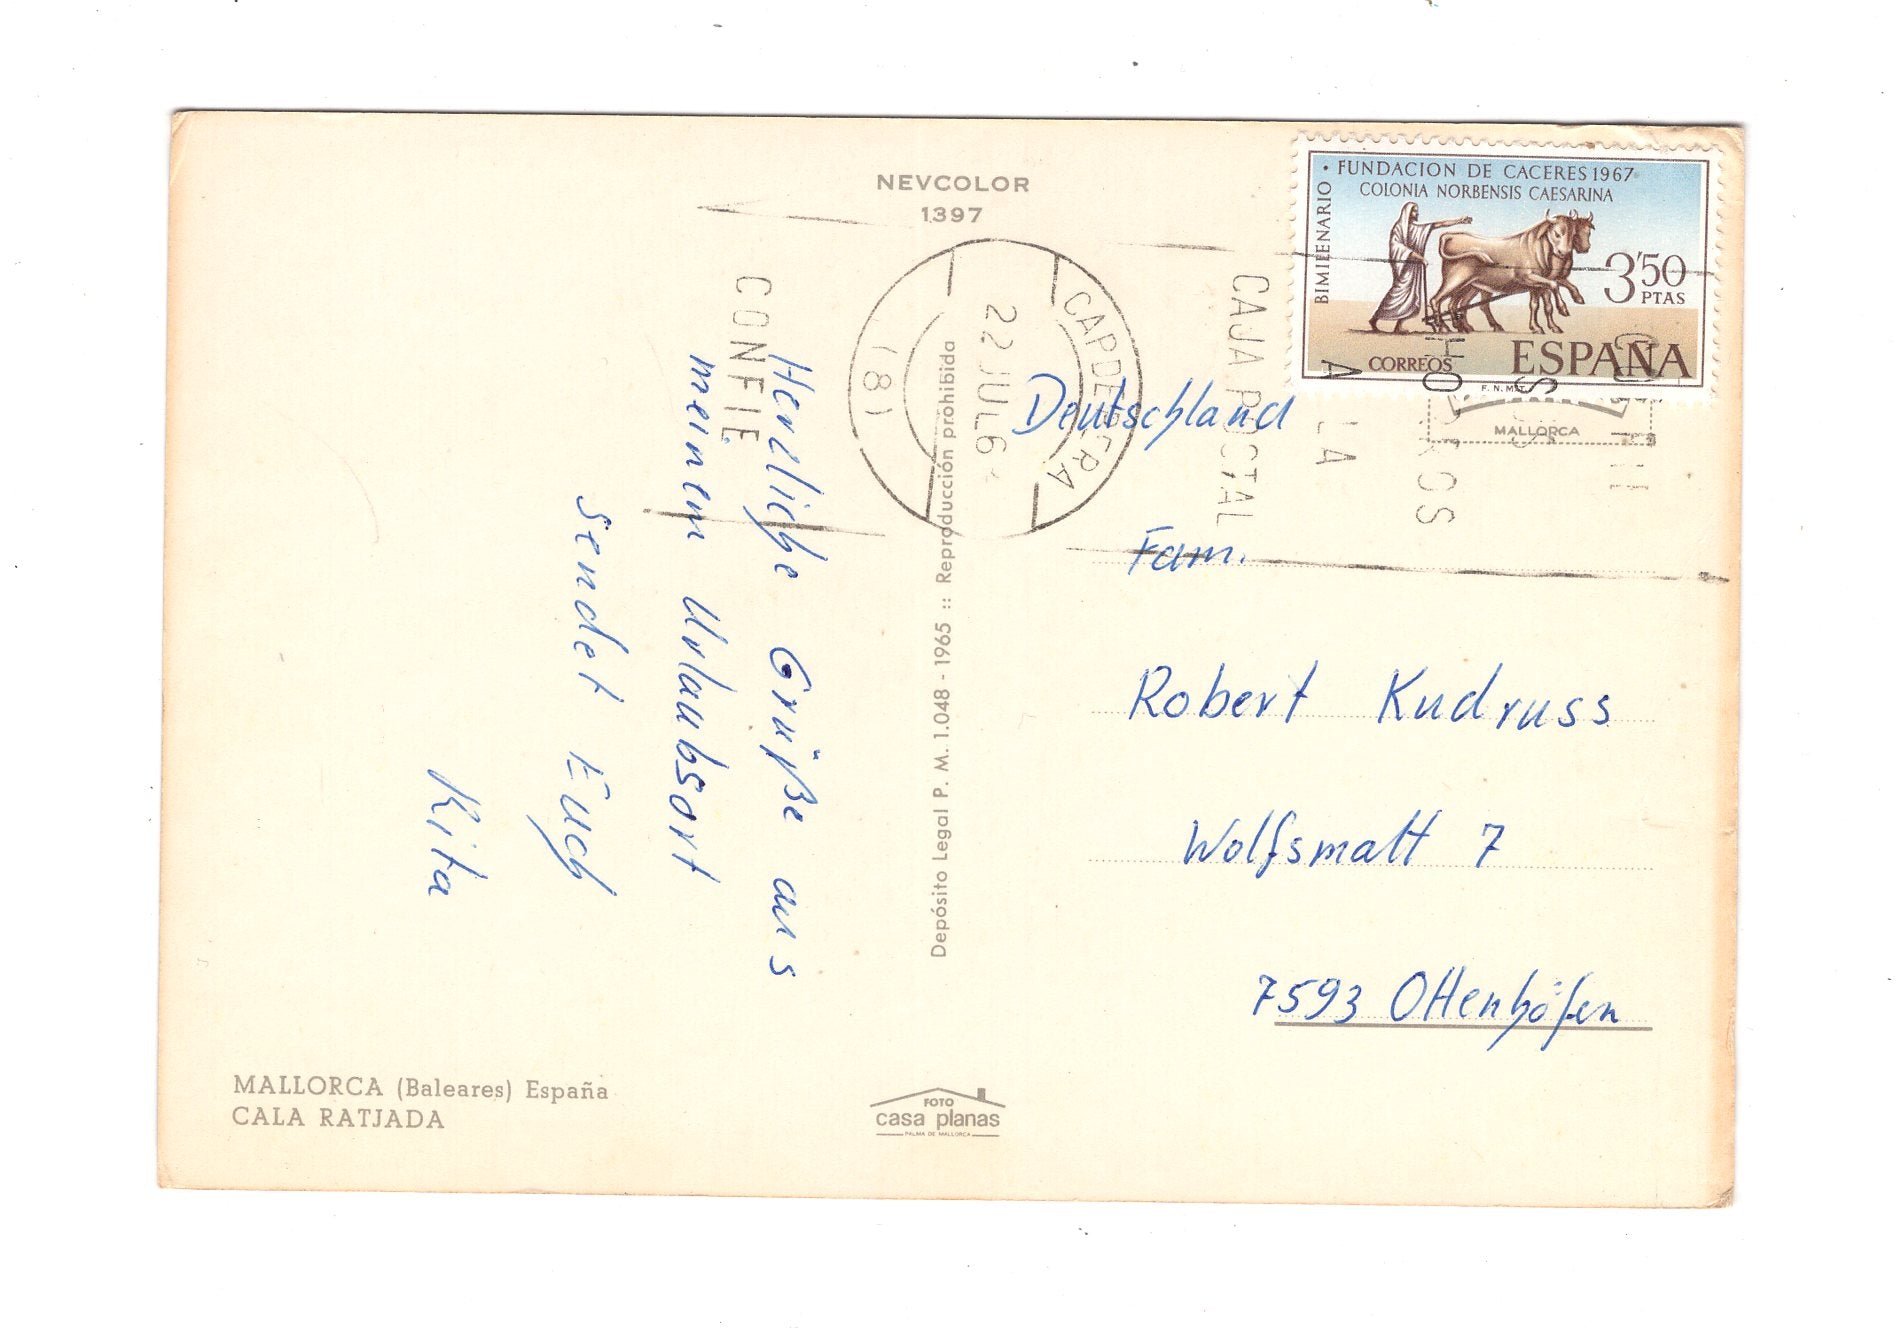 NEVCOLOR
1397
• FUNDACION DE CACERES 1967
COLONIA NORBENSIS CAESARINA
BIMILENARIO
3'50
PTAS
CORREOS ESPAÑA
F.N.M.T.
MALLORCA
CAPDEPERA
22 JUL 6
(8)
CONFIE
A LA
CAJA POSTAL
Herzliche Grüße aus
meinem Urlaubsort
sendet Euch
Rita
Deutschland
Fam.
Robert Kudruss
Wolfsmatt 7
7593 Ottenhöfen
Depósito Legal P. M. 1.048 - 1965 :: Reproducción prohibida
MALLORCA (Baleares) España
CALA RATJADA
FOTO
casa planas
PALMA DE MALLORCA